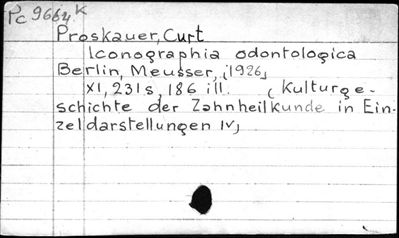 Pc 9664 K
Proskauer, Curt
Iconographia odontologica
Berlin, Meusser, (1926)
XI, 231 s, 186 ill. (Kulturge-
schichte der Zahnheilkunde in Ein-
zeldarstellungen IV)